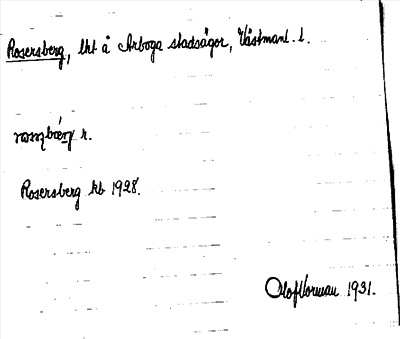 Rosersberg, lht å Arboga stadsägor, Västmanl. l.
r.
Rosersberg kb 1928.
Olof Norman 1931.